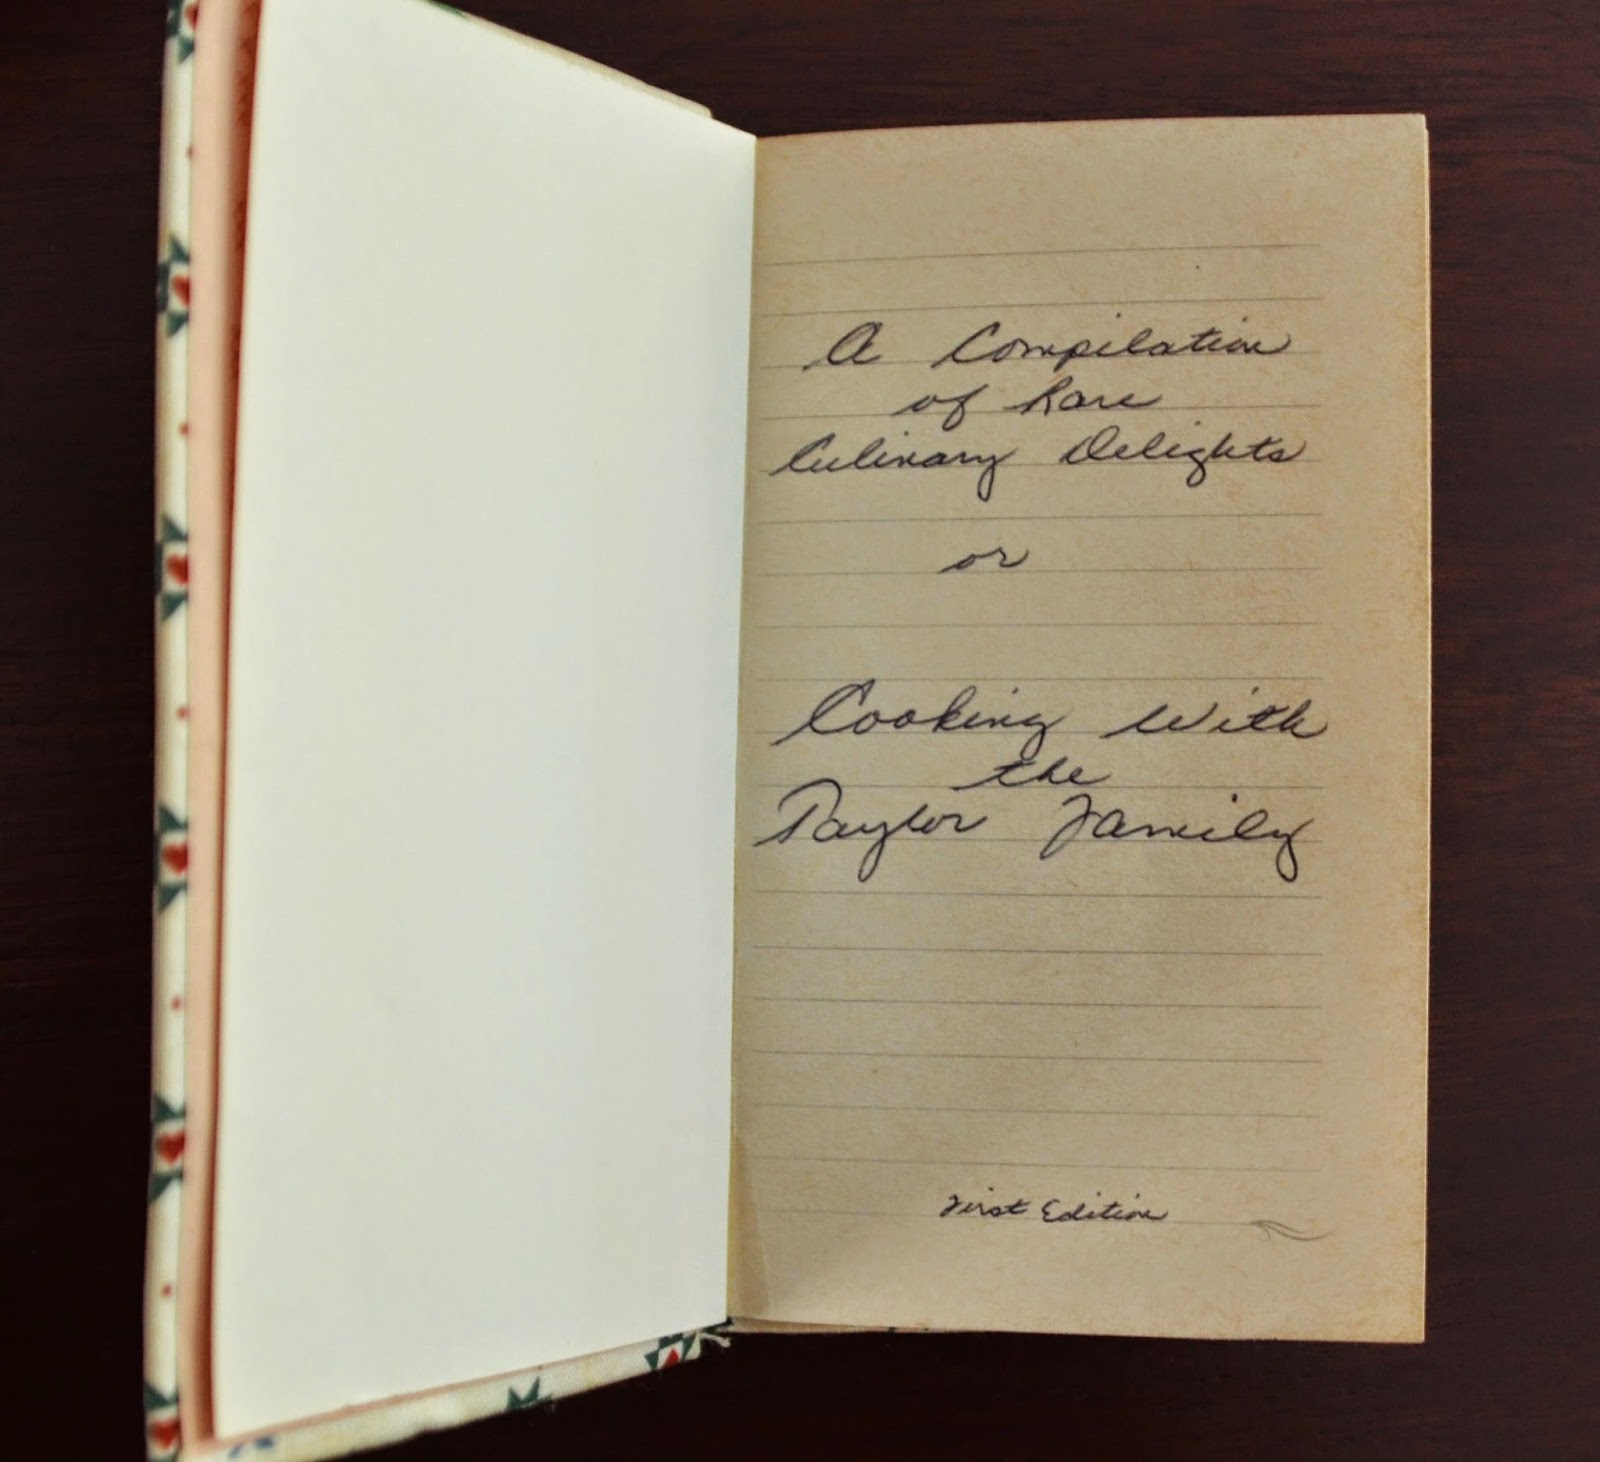 A Compilation
of Rare
Culinary Delights
or
Cooking With
the
Taylor Family
First Edition